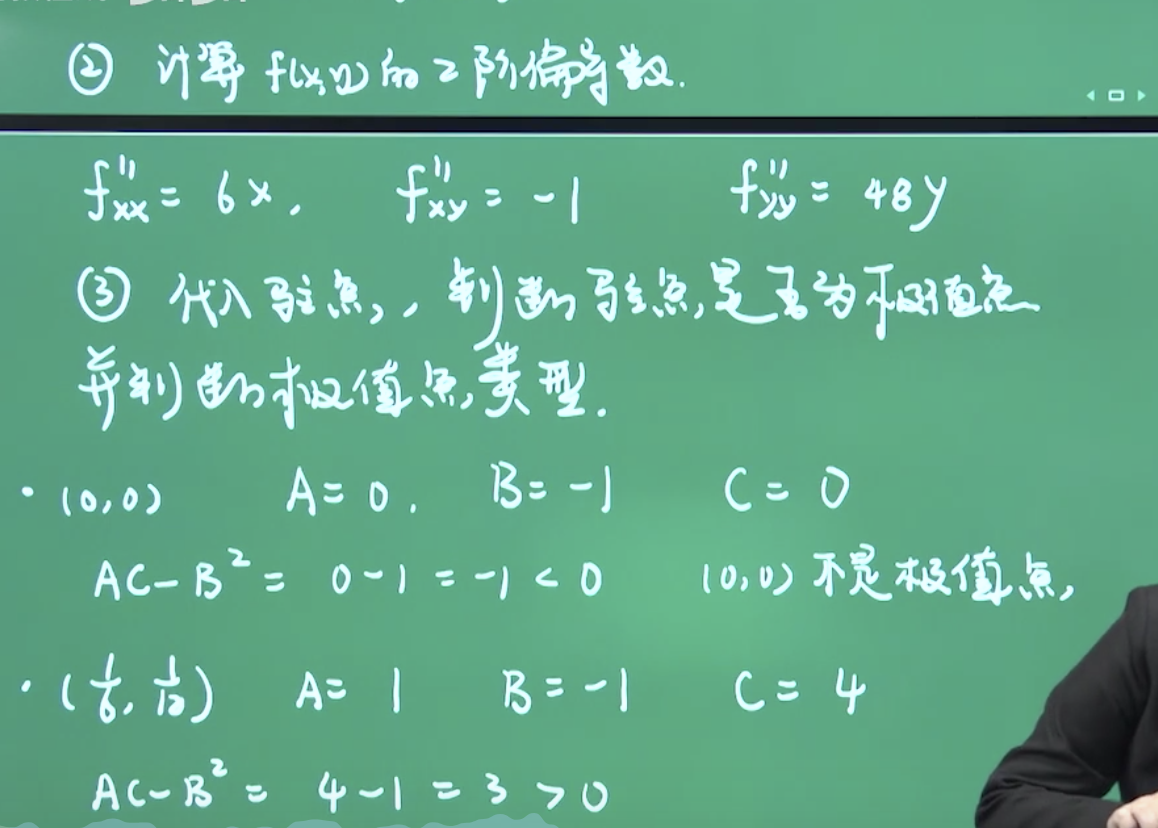 ② 计算 f(x,y) 的 2 阶偏导数.
f''xx = 6x, f''xy = -1 f''yy = 48y
③ 代入驻点, 判断驻点是否为极值点
并判断极值点类型.
· (0,0) A = 0. B = -1 C = 0
AC - B² = 0 - 1 = -1 < 0 (0,0) 不是极值点,
· (1/6, 1/12) A = 1 B = -1 C = 4
AC - B² = 4 - 1 = 3 > 0